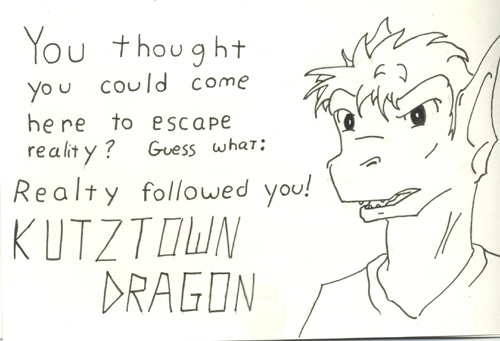 You thought
you could come
here to escape
reality? Guess what:
Realty followed you!
KUTZTOWN
DRAGON